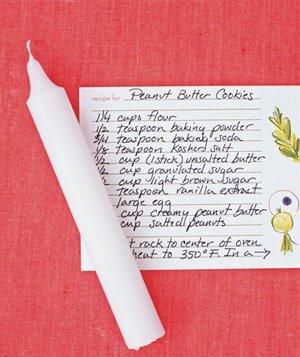 recipe for Peanut Butter Cookies
1 1/4 cups flour
1/2 teaspoon baking powder
3/4 teaspoon baking soda
1/8 teaspoon kosher salt
1/2 cup (1 stick) unsalted butter
1/2 cup granulated sugar
1/2 cup light brown sugar
teaspoon vanilla extract
large egg
cup creamy peanut butter
cup salted peanuts
t rack to center of oven
heat to 350°F. In a →